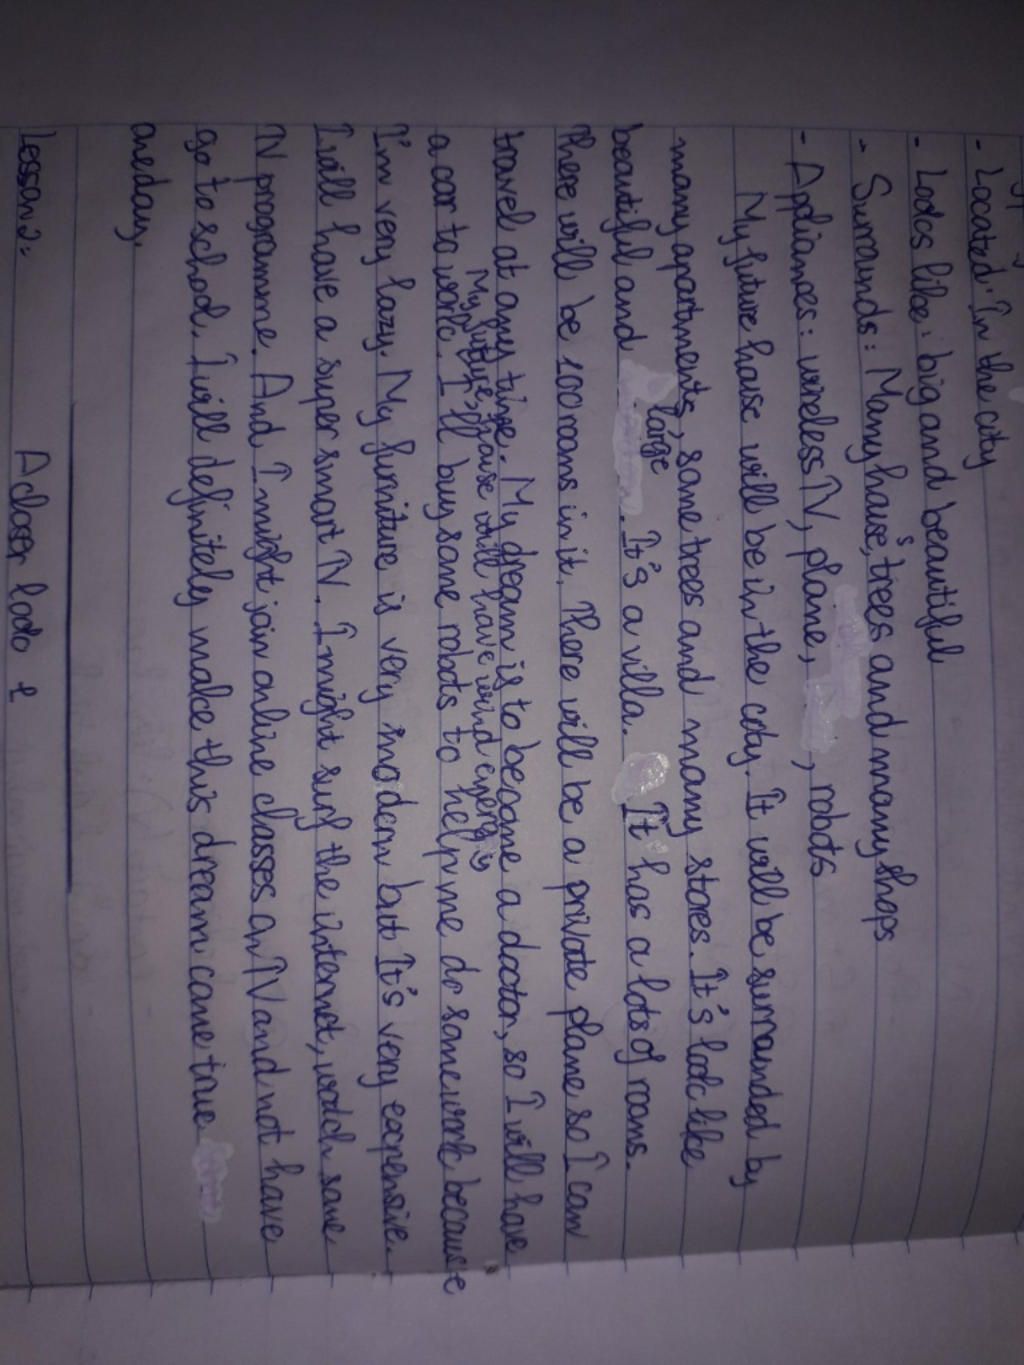 - Located: In the city
- Looks like: big and beautiful
- Surrounds: Many houses, trees and many shops
- Appliances: wireless TV, plane, , robots
My future house will be in the city. It will be surrounded by
many apartments, some trees and many stores. It's look like
beautiful and large. It's a villa. It has a lots of rooms.
There will be 100 rooms in it. There will be a private plane so I can
travel at any time. My dream is to become a doctor, so I will have
My future house will have wind energy
a car to work. I'll buy some robots to help me do some work because
I'm very lazy. My furniture is very modern but It's very expensive.
I will have a super smart TV. I might surf the internet, watch some
TV programme. And I might join online classes on TV and not have
go to school. I will definitely make this dream come true
oneday.
Lesson 2: A closer look 1